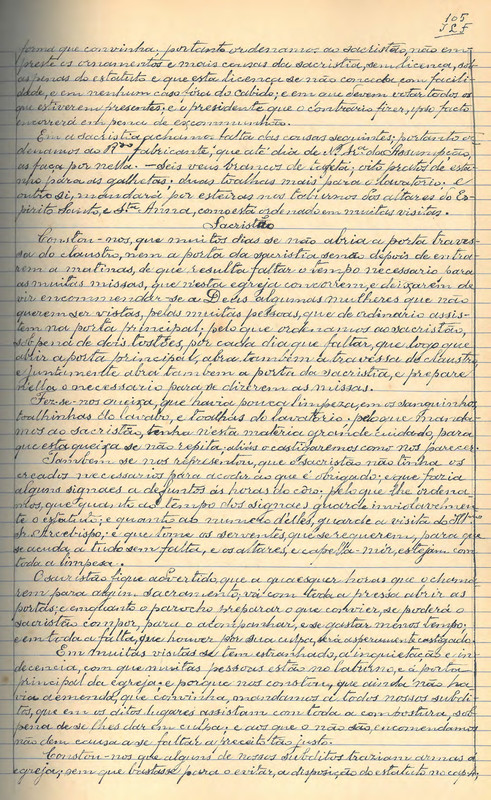 105
J.L.F
forma que convinha; portanto ordenamos ao sacristão, não em
preste os ornamentos e mais cousas da sacristia, sem licença, sob
as penas do estatuto e que esta licença se não conceda com facili
dade, e em nenhum caso fóra do cabido; e em que devem votar todos os
que estiverem presentes; e o presidente que o contrario fizer, ipso facto
encorrerá em pena de excommunhão.
Em a sachristia achamos falta das cousas seguintes; portanto or
denamos ao Rdo fabricante, que até dia de Nª Srª da Assumpção,
as faça por nella: — seis veus brancos de tafetá; oito pratos de esta
nho para as galhetas; duas toalhas mais para o lavatorio; e
outro si, mandará por esteiras nos taburnos dos altares do Es-
pirito Santo, e Stª Anna, como está ordenado em muitas visitas.
Sacristão
Constou-nos, que muitos dias se não abria a porta traves-
sa do claustro, nem a porta da sacristia senão depois de entra-
rem a matinas, de que resulta faltar o tempo necessario para
as muitas missas, que n'esta egreja concorrem, e deixarem de
vir encommendar-se a Deus algumas mulheres que não
querem ser vistas, pelas muitas pessoas, que de ordinario assis-
tem na porta principal; pelo que ordenamos ao sacristão,
sob pena de dois tostões, por cada dia que faltar, que logo que
abrir a porta principal, abra tambem a travessa do claustro,
e juntamente abra tambem a porta da sacristia, e prepare
n'ella o necessario para se dizerem as missas.
Fez-se-nos queixa, que havia pouca limpeza, em os sanguinhos,
toalhinhas do lavabo, e toalhas do lavatorio: pelo que manda-
mos ao sacristão, tenha n'esta materia grande cuidado, para
que esta queixa se não repita, aliás o castigaremos como nos parecer.
Tambem se nos representou, que o sacristão não tinha os
creados necessarios para acodir ao que é obrigado; e que fazia
alguns signaes a defuntos ás horas do côro; pelo que lhe ordena-
mos, que quanto ao tempo dos signaes guarde inviolavelmen-
te o estatuto; e quanto ao numero d'elles, guarde a visita do Illmo
Sr. Arcebispo; e que tome os serventes que se requerem, para que
se acuda a tudo sem falta, e os altares, e capella-mór, estejam com
toda a limpesa.
O sacristão fique advertido, que a quaesquer horas que o chama-
rem para algum sacramento, vá com toda a pressa abrir as
portas; e emquanto o parocho preparar o que convier, se poderá o
sacristão compor, para o acompanhar, e se gastar menos tempo;
e em toda a falta, que houver por sua culpa, será asperamente castigado.
Em muitas visitas se tem estranhado, a inquietação e in-
decencia, com que muitas pessoas estão no taburno, e á porta
principal da egreja: e porque nos constou, que ainda não ha-
via a emenda, que convinha, mandamos a todos nossos subdi-
tos, que em os ditos lugares assistam com toda a compostura, sob
pena de se lhes dar em culpa; e aos que o não são, encomendamos
não dem causa a se faltar a preceito tão justo.
Constou-nos que alguns de nossos subditos traziam armas á
egreja; sem que bastasse para o evitar, a disposição do estatuto no cap.